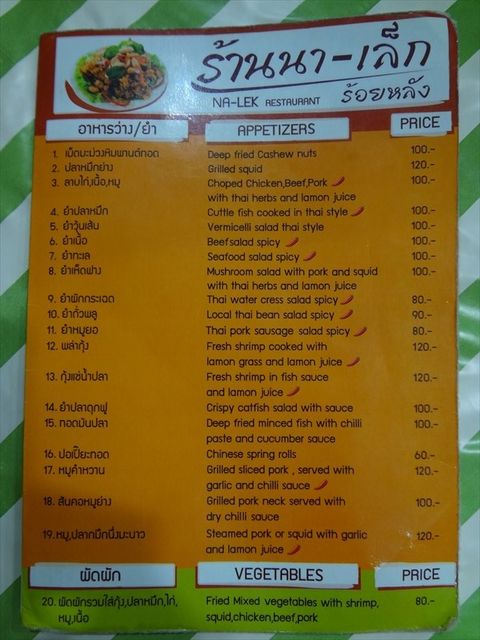 ร้านนา-เล็ก
NA-LEK RESTAURANT ร้อยหลัง
อาหารว่าง/ยำ APPETIZERS PRICE
1. เม็ดมะม่วงหิมพานต์ทอด Deep fried Cashew nuts 100.-
2. ปลาหมึกย่าง Grilled squid 120.-
3. ลาบไก่,เนื้อ,หมู Choped Chicken,Beef,Pork 100.-
with thai herbs and lamon juice
4. ยำปลาหมึก Cuttle fish cooked in thai style 100.-
5. ยำวุ้นเส้น Vermicelli salad thai style 100.-
6. ยำเนื้อ Beef salad spicy 100.-
7. ยำทะเล Seafood salad spicy 100.-
8. ยำเห็ดฟาง Mushroom salad with pork and squid 100.-
with thai herbs and lamon juice
9. ยำผักกระเฉด Thai water cress salad spicy 80.-
10. ยำถั่วพลู Local thai bean salad spicy 90.-
11. ยำหมูยอ Thai pork sausage salad spicy 80.-
12. พล่ากุ้ง Fresh shrimp cooked with 120.-
lamon grass and lamon juice
13. กุ้งแช่น้ำปลา Fresh shrimp in fish sauce 120.-
and lamon juice
14. ยำปลาดุกฟู Crispy catfish salad with sauce 100.-
15. ทอดมันปลา Deep fried minced fish with chilli 100.-
paste and cucumber sauce
16. ปอเปี๊ยะทอด Chinese spring rolls 60.-
17. หมูคำหวาน Grilled sliced pork , served with 120.-
garlic and chilli sauce
18. สันคอหมูย่าง Grilled pork neck served with 100.-
dry chilli sauce
19. หมู,ปลาหมึกนึ่งมะนาว Steamed pork or squid with garlic 120.-
and lamon juice
ผัดผัก VEGETABLES PRICE
20. ผัดผักรวมใส่กุ้ง,ปลาหมึก,ไก่, Fried Mixed vegetables with shrimp, 80.-
หมู,เนื้อ squid,chicken,beef,pork